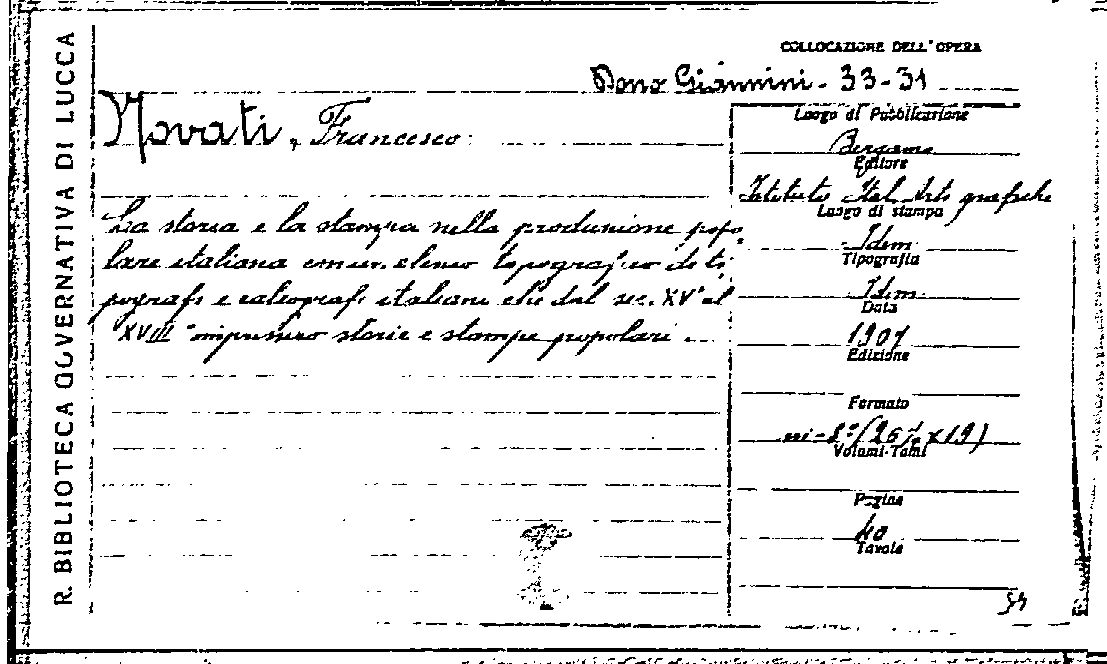 R. BIBLIOTECA GOVERNATIVA DI LUCCA
COLLOCAZIONE DELL'OPERA
Dono Giannini - 33-31
Novati, Francesco
La storia e la stampa nella produzione popo
lare italiana con un elenco topografico di ti
pografi e calcografi italiani che dal sec. XV° al
XVIII° impressero storie e stampe popolari.
Luogo di Pubblicazione
Bergamo
Editore
Istituto Ital. Arti grafiche
Luogo di stampa
Idem
Tipografia
Idem
Data
1907
Edizione
Formato
in-8°
Volumi-Tomi
Pagine
40
Tavole